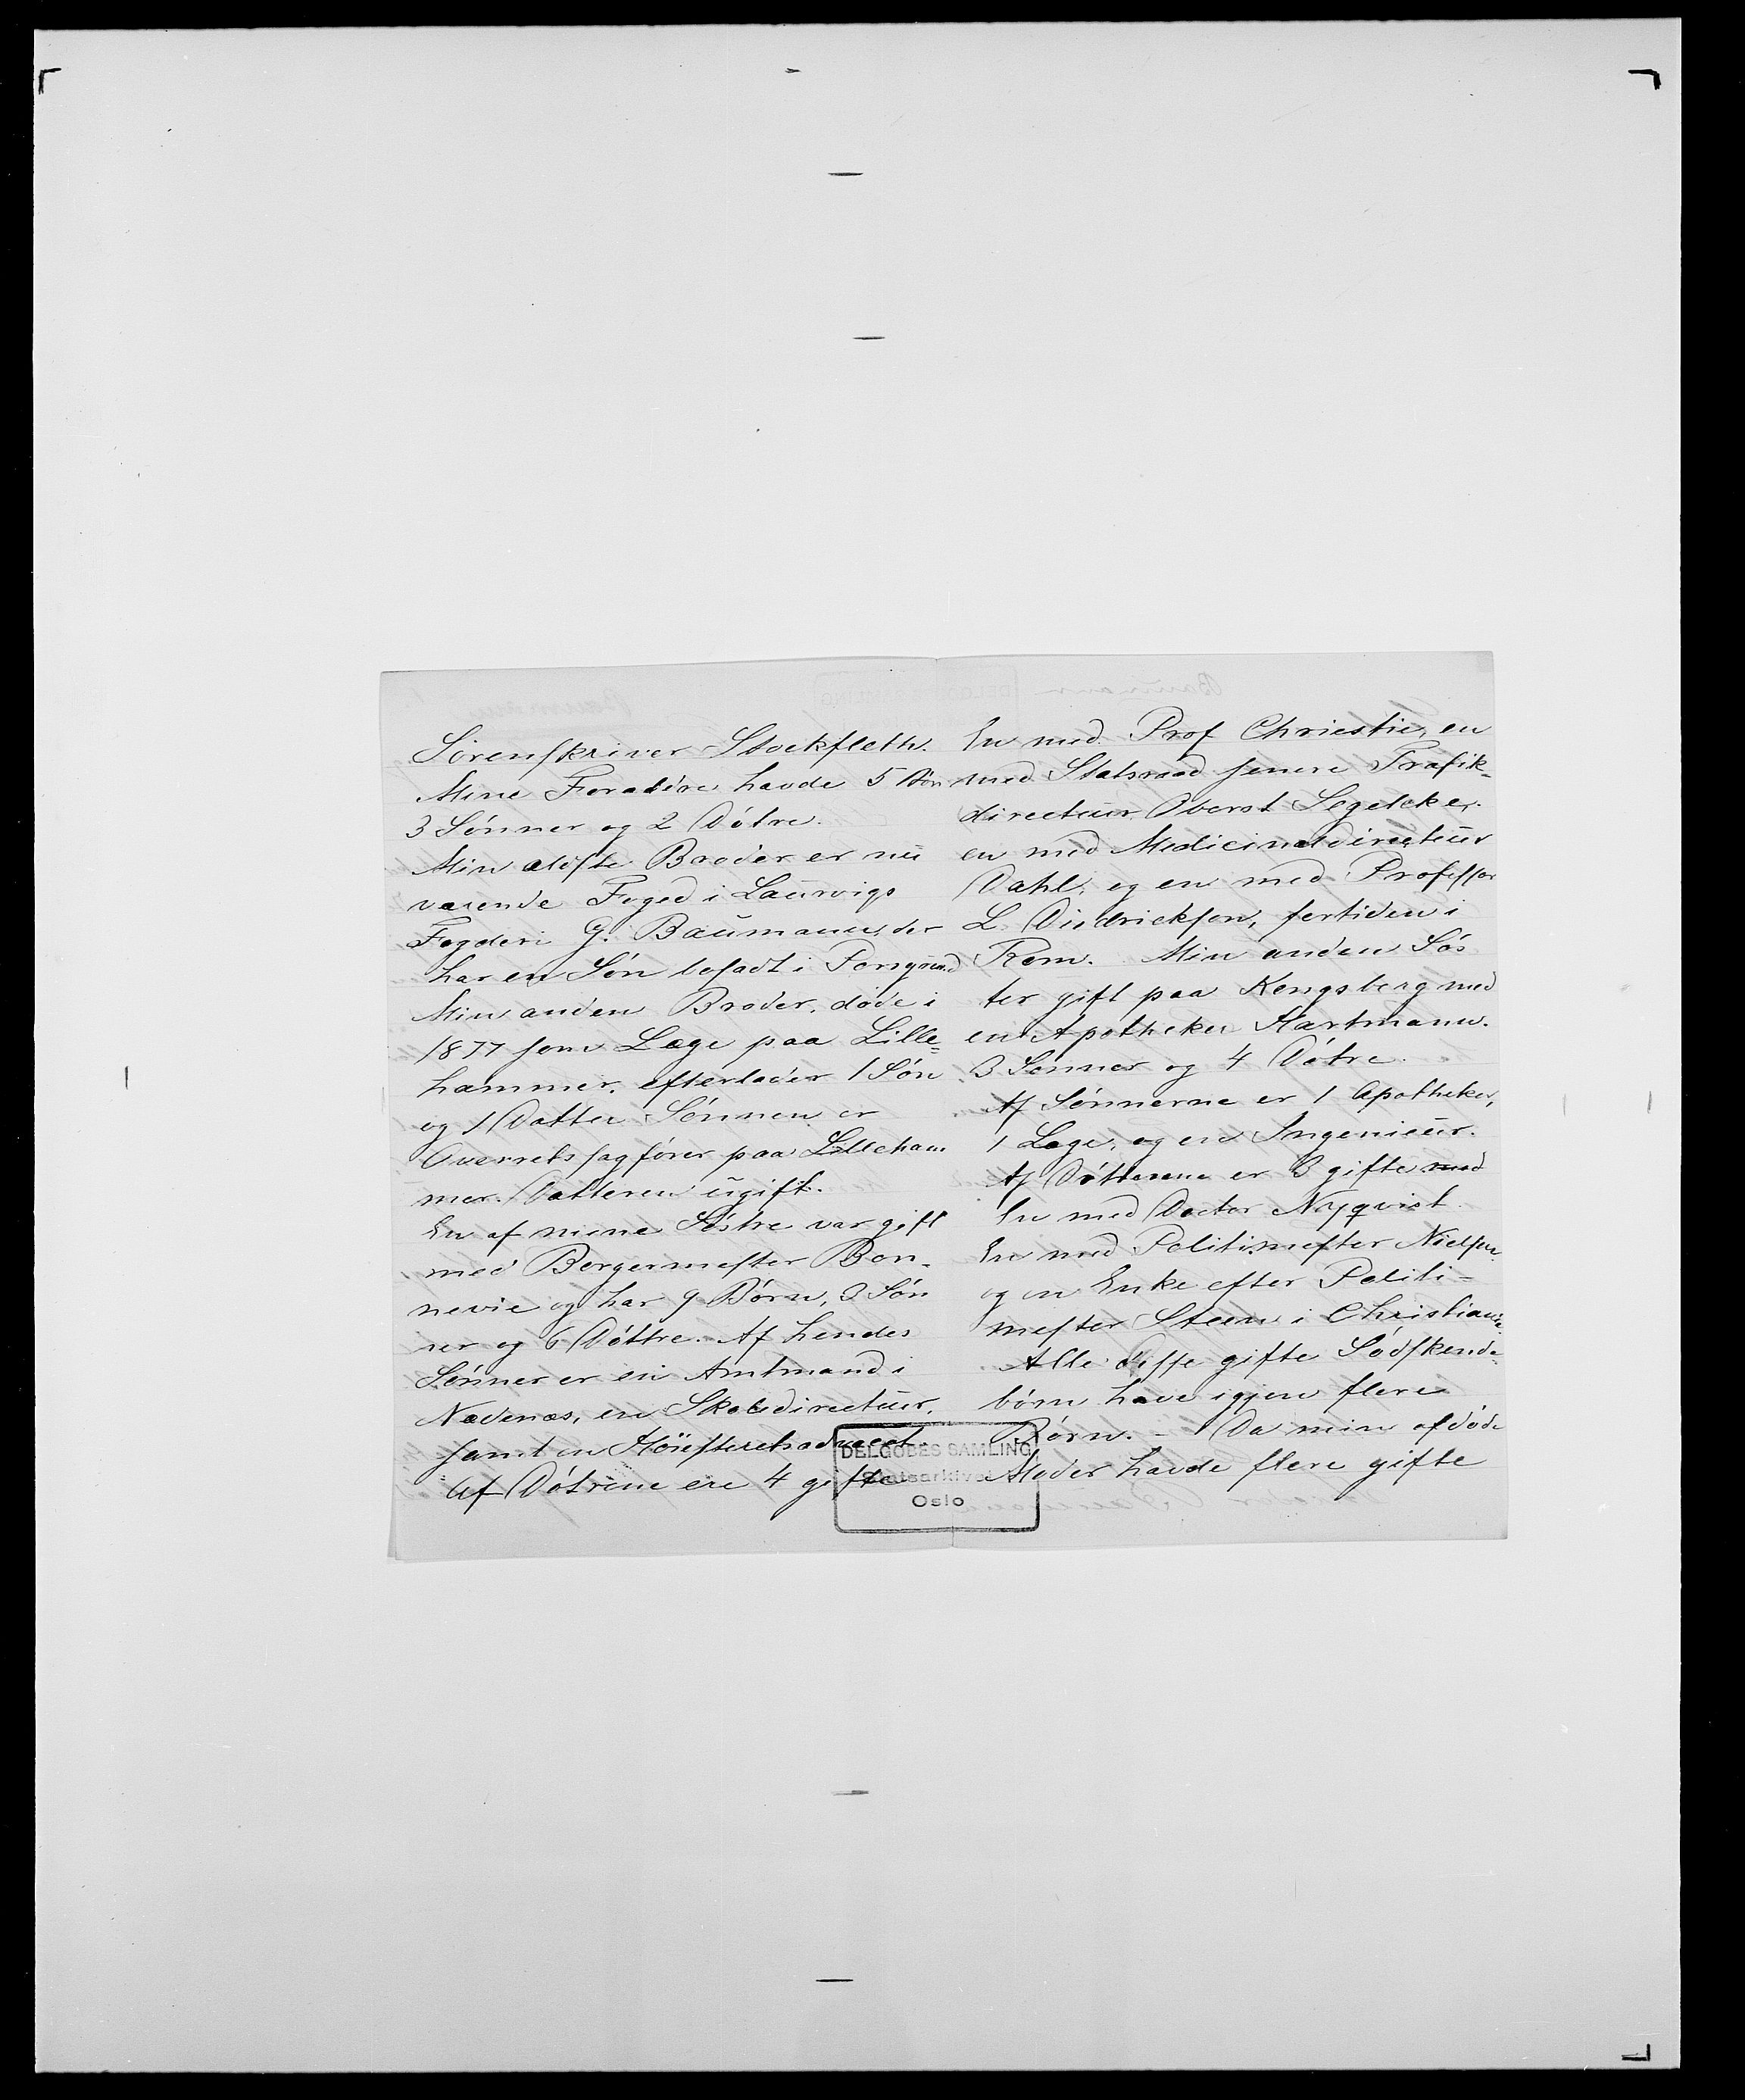 Sorenskriver Stockfleth.
Mine Forældre havde 5 Børn
3 Sønner og 2 Døtre.
Min ældste Broder er nu
værende Foged i Laurvigs
Fogderi G. Baumann, der
har en Søn bosadt i Porsgrund
Min anden Broder, døde i
1877 som Læge paa Lille=
hammer, efterlader 1 Søn
og 1 Datter. Sønnen er
Overretssagfører paa Lilleham
mer. Datteren ugift.
En af mine Søstre var gift
med Borgermester Bon-
nevie og har 9 Børn, 3 Søn
ner og 6 Døttre. Af hendes
Sønner er en Amtmand i
Nedenæs, en Skoledirecteur,
samt en Høiesteretsadvocat.
Af Døtrene ere 4 gifte
En med Prof Chriestie, en
med Statsraad senere Trafik=
directeur Oberst Segelcke,
en med Medicinaldirecteur
Dahl, og en med Professor
L. Diedrickson, fortiden i
Rom. Min anden Søs
ter gift paa Kongsberg med
en Apotheker Hartmann.
3 Sønner og 4 Døtre.
Af Sønnerne er 1 Apotheker,
1 Læge, og en Ingenieur.
Af Døtterene er 3 gifte med
En med Doctor Nyqvist.
En med Politimester Nielsen
og en Enke efter Politi=
mester Steen i Christians.
Alle disse gifte Sødskende=
børn have igjen flere
Børn. - Da min afdøde
Moder havde flere gifte
DELGOBES SAMLING
Statsarkivet i
Oslo